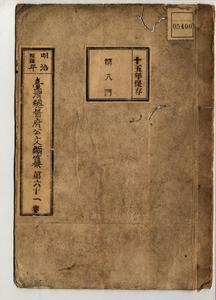 十五年保存
第八門
明治
臺灣總督府公文類纂 第六十一卷
05400